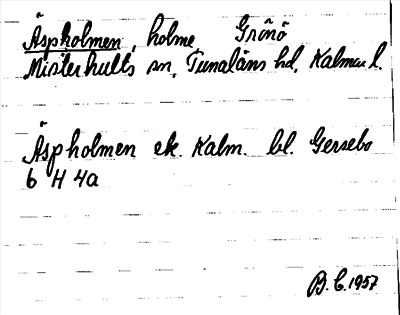 Äspholmen, holme Grönö
Misterhults sn, Tunaläns hd, Kalmar l.
Äspholmen ek. Kalm. bl. Gersebo
6 H 4a
B. C. 1957